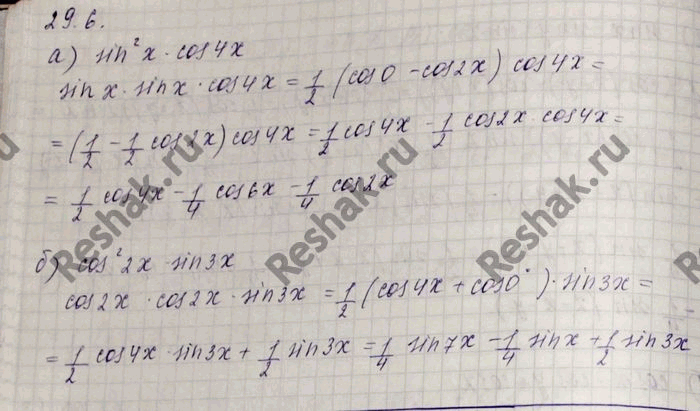 29.6.
а) sin²x · cos4x
sin x · sin x · cos4x = 1/2 (cos0 - cos2x) cos4x =
= (1/2 - 1/2 cos2x) cos4x = 1/2 cos4x - 1/2 cos2x cos4x =
= 1/2 cos4x - 1/4 cos6x - 1/4 cos2x
б) cos²2x · sin3x
cos2x · cos2x · sin3x = 1/2 (cos4x + cos0°) · sin3x =
= 1/2 cos4x · sin3x + 1/2 sin3x = 1/4 sin7x - 1/4 sinx + 1/2 sin3x
Reshak.ru
Reshak.ru
Reshak.ru